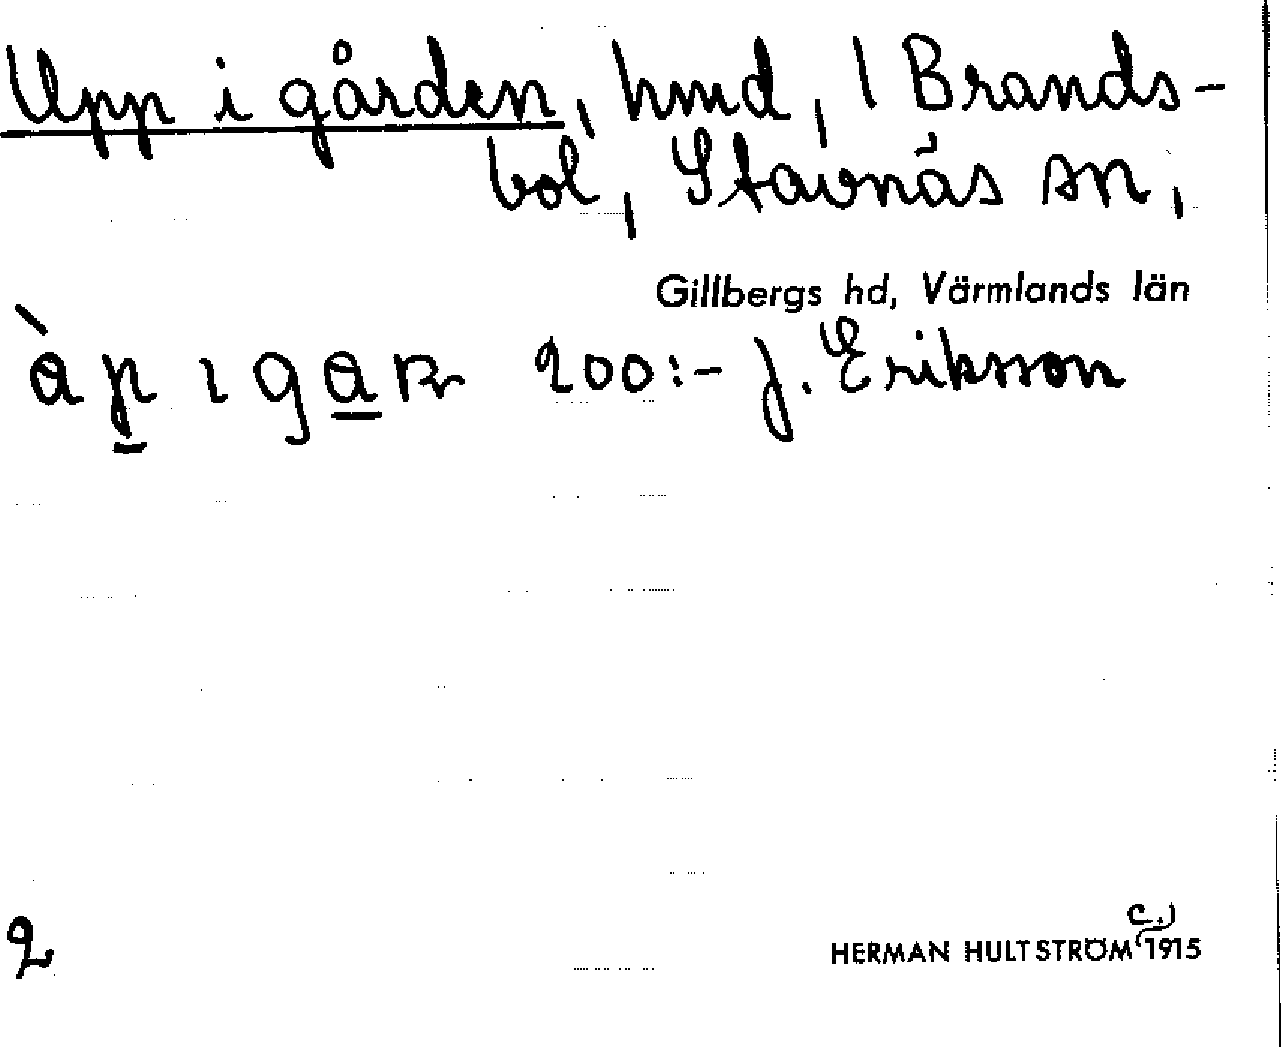 Upp i gården, hmd, 1 Brands-
bol, Stavnäs sn,
Gillbergs hd, Värmlands län
àp ı gaɴ 200:- J. Eriksson
2
HERMAN HULTSTRÖM (c.) 1915